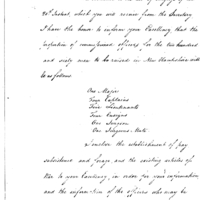 20th Instant, which you will receive from the Secretary
I have the honor to inform your Excellency, that the
proportion of commissioned officers for the two hundred
and sixty men to be raised in New Hampshire will
be as follows.
One Major
Four Captains
Five Lieutenants
Four Ensigns
One Surgeon
One Surgeons Mate
I enclose the establishment of pay
subsistence and forage, and the existing articles of
War to your Excellency, in order for your information
and the information of the officers who may be